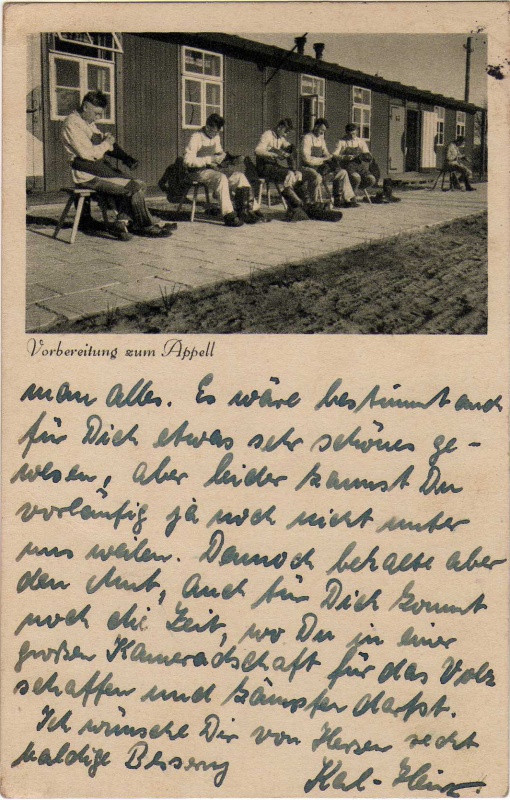 Vorbereitung zum Appell
man alles. Es wäre bestimmt auch
für Dich etwas sehr schönes ge-
wesen, aber leider kannst Du
vorläufig ja noch nicht unter
uns weilen. Dennoch behalte aber
den Mut, auch für Dich kommt
noch die Zeit, wo Du in einer
großen Kameradschaft für das Volk
schaffen und kämpfen darfst.
Ich wünsche Dir von Herzen recht
baldige Besserung
Karl-Heinz.